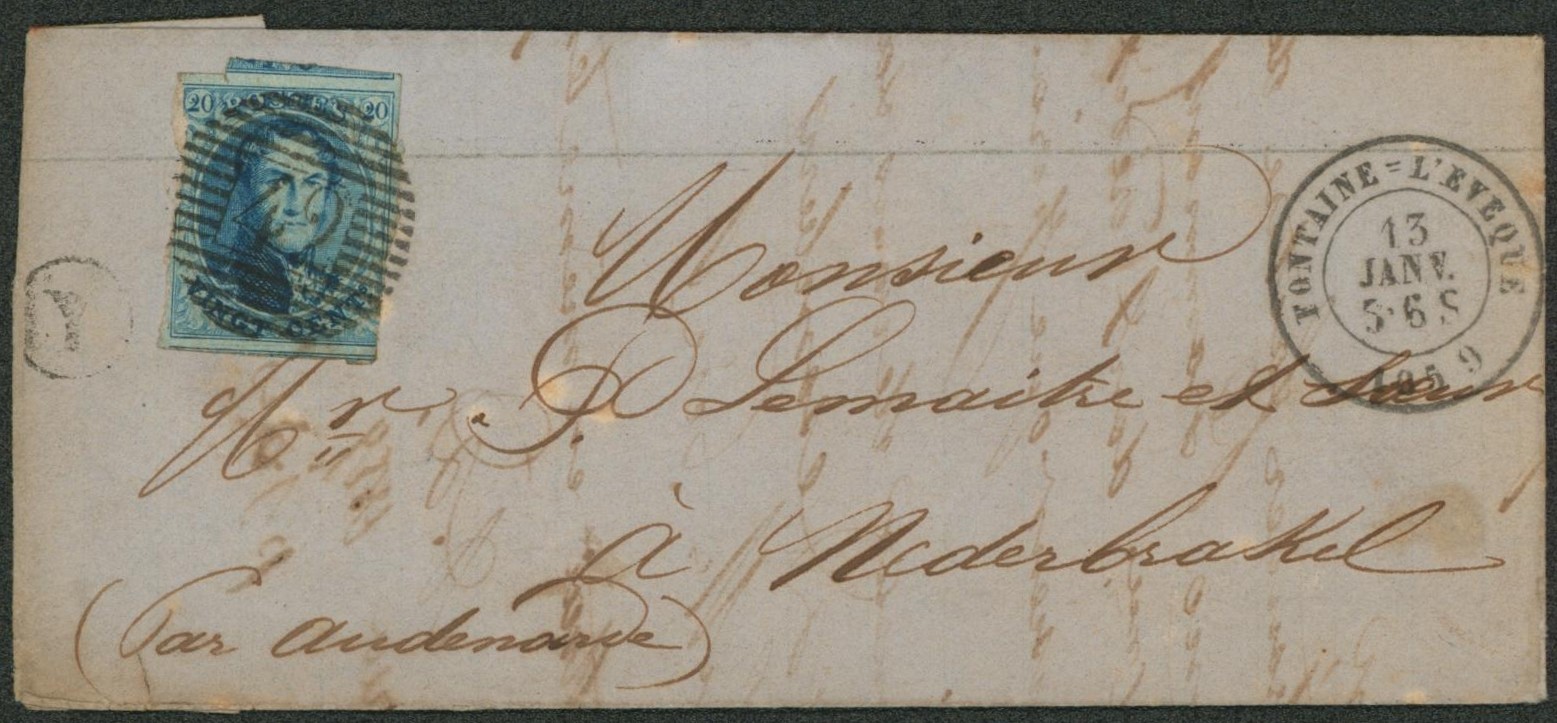 20 POSTES 20
VINGT CENT.
A
FONTAINE=L'EVEQUE
13
JANV.
5·6 S
1859
Monsieur
Mr. P. Lemaitre et Sœur
à Nederbrakel
(Par Audenarde)